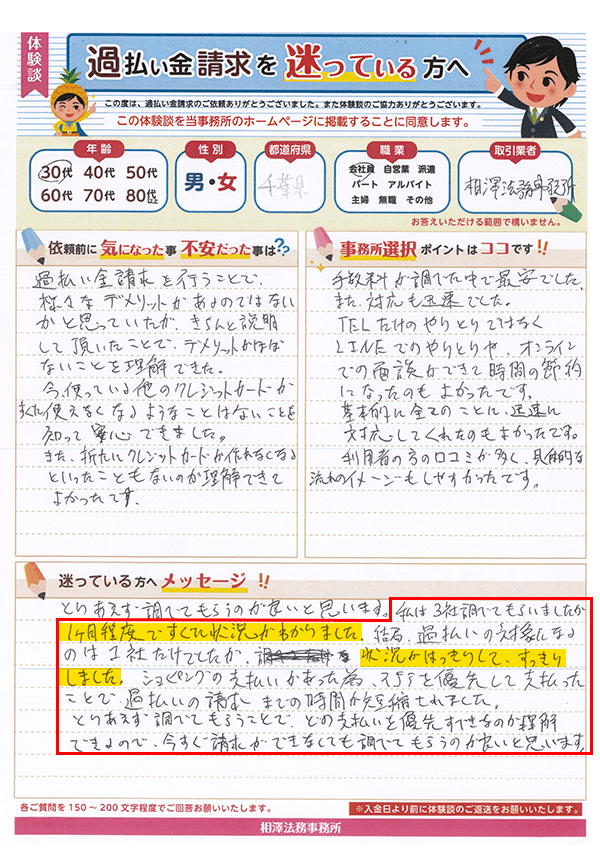 体験談
過払い金請求を迷っている方へ
この度は、過払い金請求のご依頼ありがとうございました。また体験談のご協力ありがとうございます。
この体験談を当事務所のホームページに掲載することに同意します。
年齢
30代 40代 50代
60代 70代 80代以上
性別
男・女
都道府県
千葉県
職業
会社員 自営業 派遣
パート アルバイト
主婦 無職 その他
取引業者
相澤法務事務所
お答えいただける範囲で構いません。
依頼前に気になった事 不安だった事は??
過払い金請求を行うことで、
様々なデメリットがあるのではない
かと思っていたが、きちんと説明
して頂いたことで、デメリットがほぼ
ないことを理解できた。
今、使っている他のクレジットカードが
使えなくなるようなことはないことを
知って安心できました。
また、新たにクレジットカードが作れなくなる
といったこともないのが理解できて
よかったです。
事務所選択ポイントはココです!!
手数料が調べた中で最安でした。
また、対応も迅速でした。
TELだけのやりとりではなく
LINEでのやりとりや、オンライン
での面談ができて時間の節約
になったのもよかったです。
基本的に全てのことに、迅速に
対応してくれたのもよかったです。
利用者の方の口コミが多く、具体的な
流れのイメージもしやすかったです。
迷っている方へメッセージ!!
とりあえず調べてもらうのが良いと思います。私は3社調べてもらいましたが
1ヶ月程度ですぐに状況がわかりました。結局、過払いの対象になる
のは1社だけでしたが、状況がはっきりして、すっきり
しました。ショッピングの支払いがあった為、そちらを優先して支払った
ことで、過払いの請求までの時間が短縮されました。
とりあえず調べてもらうことで、どの支払いを優先すべきなのか理解
できるので、今すぐ請求ができなくても調べてもらうのが良いと思います。
各ご質問を150～200文字程度でご回答お願いいたします。
※入金日より前に体験談のご返送をお願いいたします。
相澤法務事務所